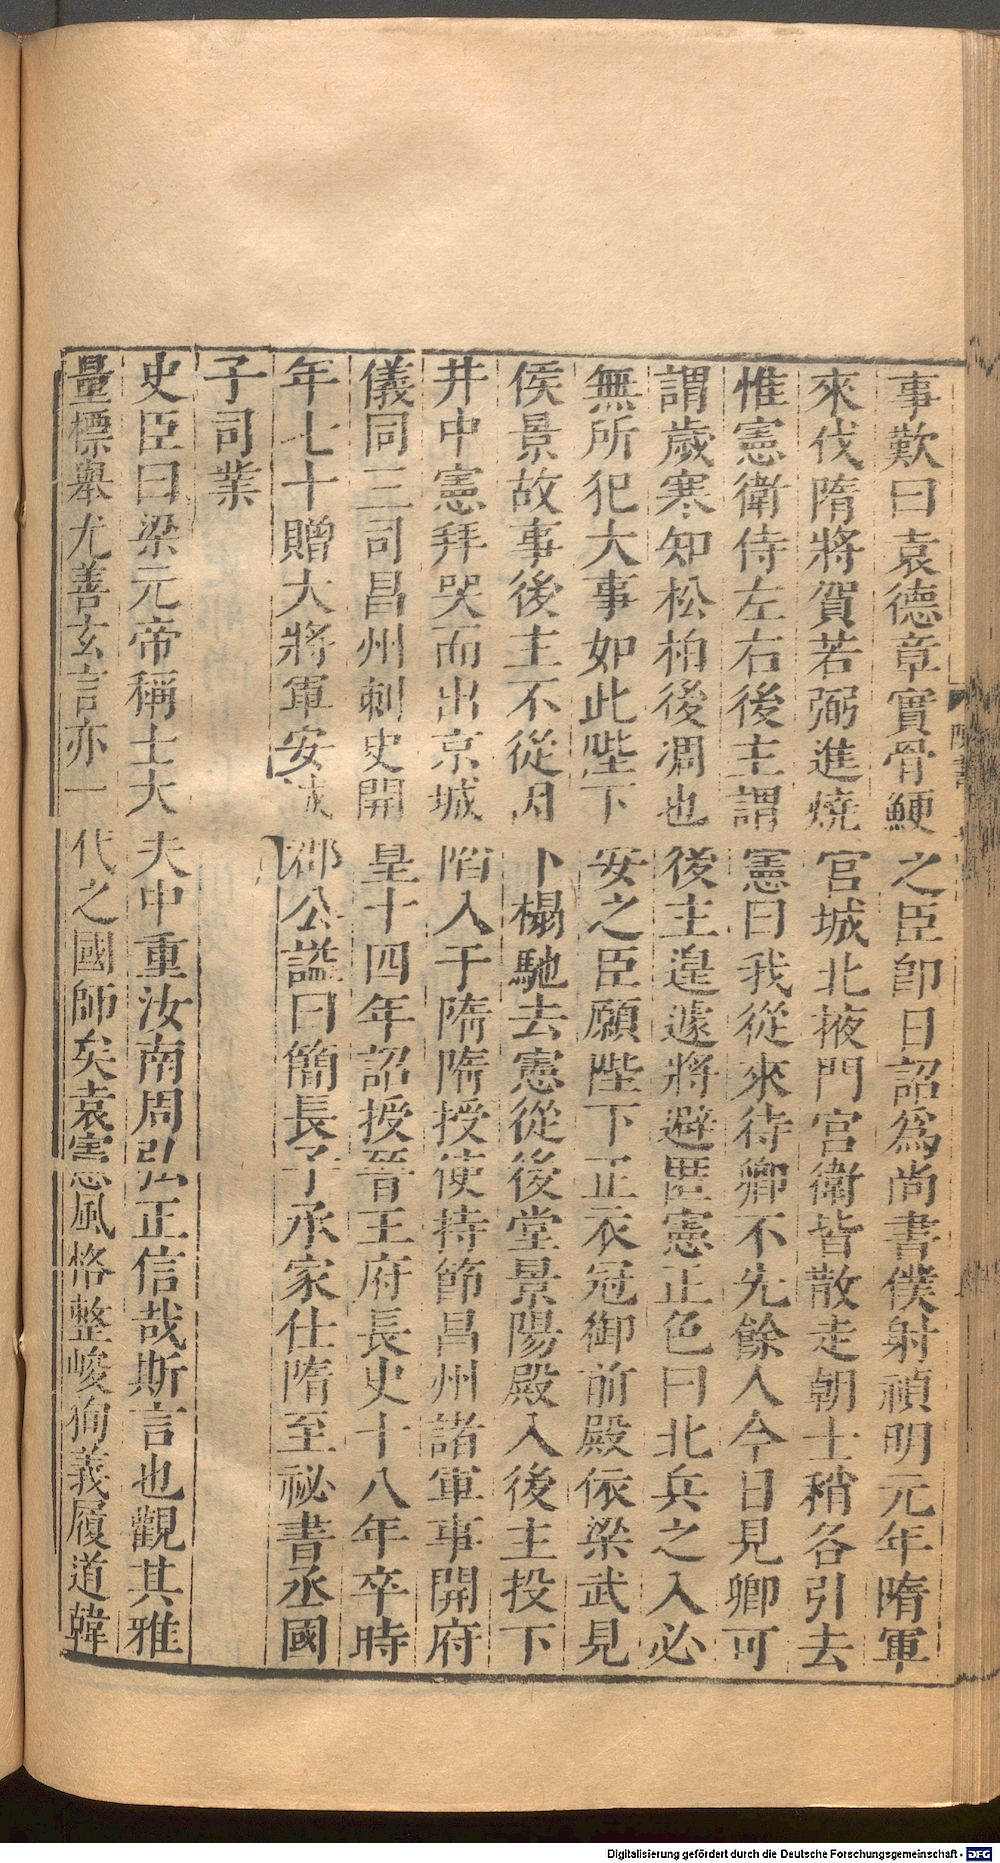 事歎曰袁德章實骨鯁之臣卽日詔爲尚書僕射禎明元年隋軍
來伐隋將賀若弼進燒宫城北掖門宫衛皆散走朝士稍各引去
惟憲衛侍左右後主謂憲曰我從來待卿不先餘人今日見卿可
謂歲寒知松柏後凋也後主遑遽將避匿憲正色曰北兵之入必
無所犯大事如此陛下安之臣願陛下正衣冠御前殿依梁武見
侯景故事後主不從因下榻馳去憲從後堂景陽殿入後主投下
井中憲拜哭而出京城陷入于隋隋授使持節昌州諸軍事開府
儀同三司昌州刺史開皇十四年詔授晉王府長史十八年卒時
年七十贈大將軍安城郡公諡曰簡長子承家仕隋至祕書丞國
子司業
史臣曰梁元帝稱士大夫中重汝南周弘正信哉斯言也觀其雅
量標舉尤善玄言亦一代之國師矣袁憲風格整峻徇義履道韓
陳書
Digitalisierung gefördert durch die Deutsche Forschungsgemeinschaft - DFG